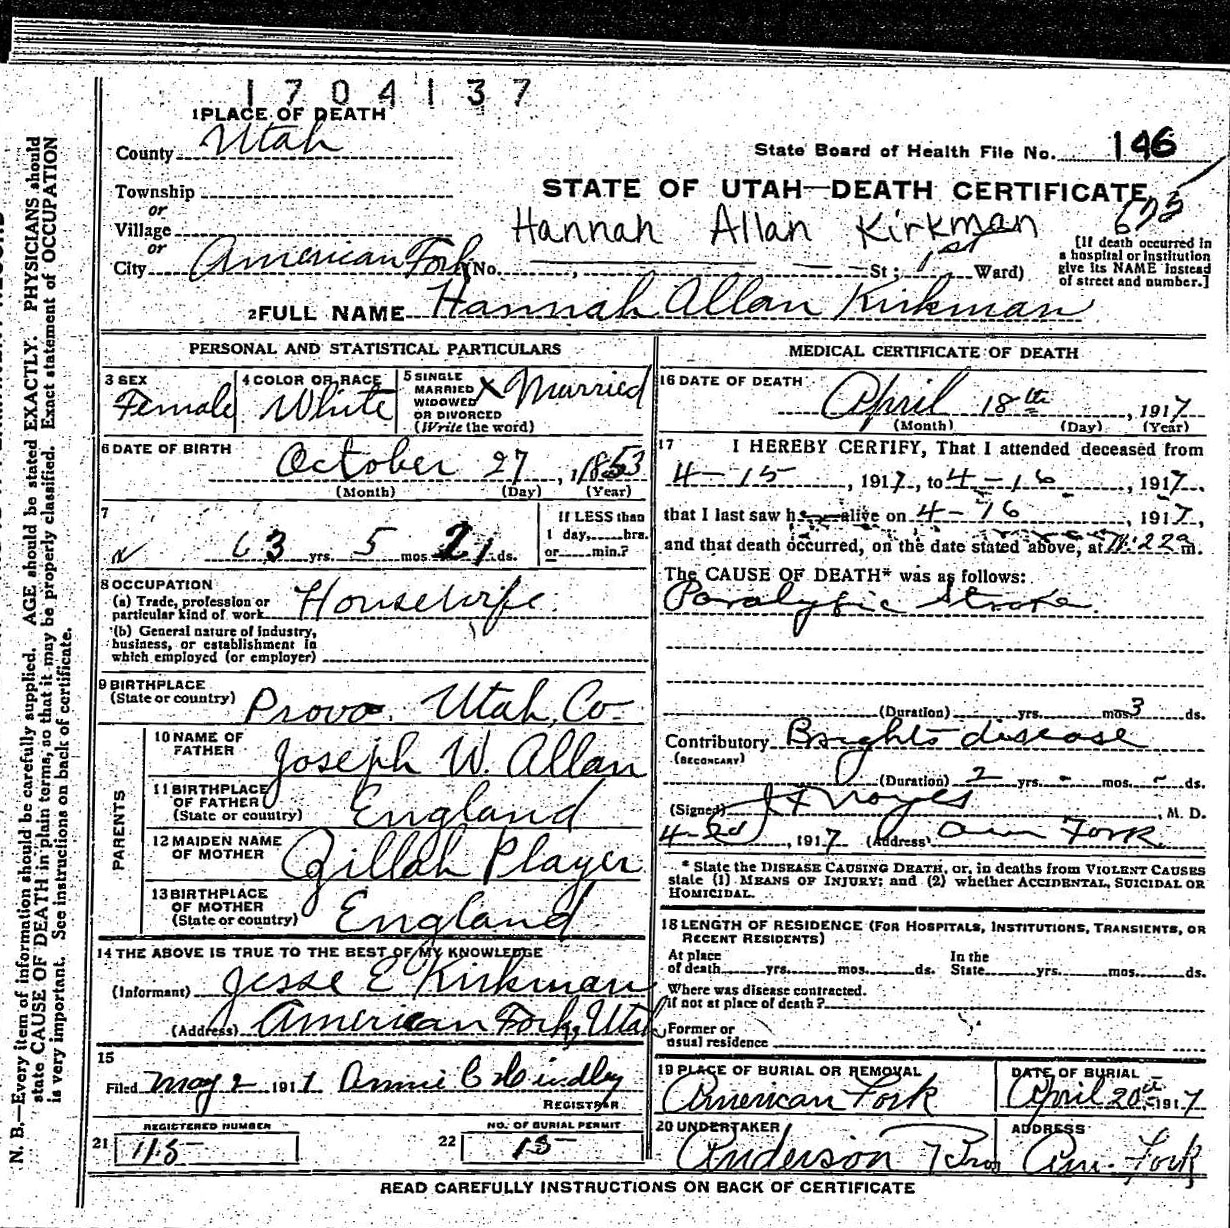 1704137
1 PLACE OF DEATH
County Utah
State Board of Health File No. 146
Township
or
STATE OF UTAH—DEATH CERTIFICATE
Village
Hannah Allan Kirkman
or
City American Fork (No. , St; 1st Ward)
[If death occurred in
a hospital or institution
give its NAME instead
of street and number.]
2 FULL NAME Hannah Allan Kirkman
PERSONAL AND STATISTICAL PARTICULARS
3 SEX
Female
4 COLOR OR RACE
White
5 SINGLE
MARRIED
WIDOWED
OR DIVORCED
(Write the word)
X Married
6 DATE OF BIRTH
October 27, 1853
(Month) (Day) (Year)
7
63 yrs. 5 mos. 21 ds.
If LESS than
1 day, hrs.
or min.?
8 OCCUPATION
(a) Trade, profession or
particular kind of work Housewife
(b) General nature of industry,
business, or establishment in
which employed (or employer)
9 BIRTHPLACE
(State or country)
Provo. Utah, Co.
PARENTS
10 NAME OF
FATHER
Joseph W. Allan
11 BIRTHPLACE
OF FATHER
(State or country)
England
12 MAIDEN NAME
OF MOTHER
Zillah Player
13 BIRTHPLACE
OF MOTHER
(State or country)
England
14 THE ABOVE IS TRUE TO THE BEST OF MY KNOWLEDGE
(Informant) Jesse E Kirkman
(Address) American Fork, Utah
15
Filed May 2 1917
REGISTRAR
REGISTERED NUMBER
21 115
NO. OF BURIAL PERMIT
22 15
MEDICAL CERTIFICATE OF DEATH
16 DATE OF DEATH
April 18th, 1917
(Month) (Day) (Year)
17 I HEREBY CERTIFY, That I attended deceased from
4-15, 1917, to 4-16, 1917,
that I last saw h alive on 4-16, 1917,
and that death occurred, on the date stated above, at m.
The CAUSE OF DEATH* was as follows:
Paralytic Stroke.
(Duration) yrs. mos. 3 ds.
Contributory Brights disease
(SECONDARY)
(Duration) 2 yrs. - mos. - ds.
(Signed) Noyes, M. D.
, 1917 (Address) Am Fork.
* State the DISEASE CAUSING DEATH, or, in deaths from VIOLENT CAUSES
state (1) MEANS OF INJURY; and (2) whether ACCIDENTAL, SUICIDAL OR
HOMICIDAL.
18 LENGTH OF RESIDENCE (FOR HOSPITALS, INSTITUTIONS, TRANSIENTS, OR
RECENT RESIDENTS)
At place
of death yrs. mos. ds.
In the
State yrs. mos. ds.
Where was disease contracted.
if not at place of death?
Former or
usual residence
19 PLACE OF BURIAL OR REMOVAL
American Fork
DATE OF BURIAL
April 20th 1917
20 UNDERTAKER
Anderson Bros
ADDRESS
Am. Fork
READ CAREFULLY INSTRUCTIONS ON BACK OF CERTIFICATE
N. B.—Every item of information should be carefully supplied. AGE should be stated EXACTLY. PHYSICIANS should
state CAUSE OF DEATH in plain terms, so that it may be properly classified. Exact statement of OCCUPATION
is very important. See instructions on back of certificate.